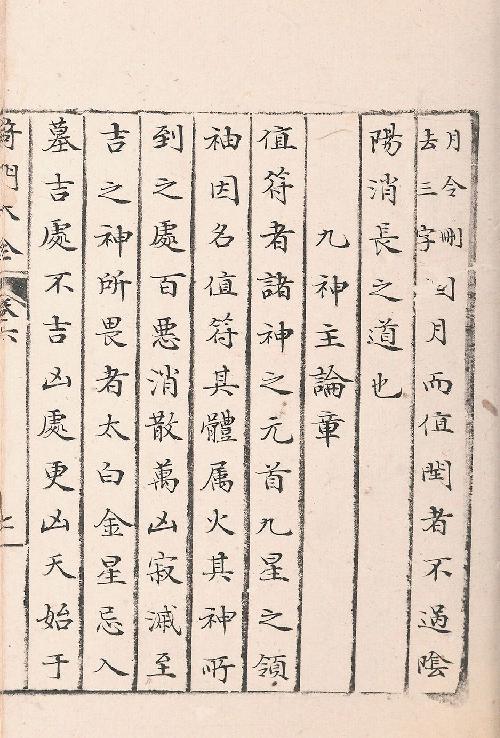 月令刪
去三字
月而值閏者不過陰
陽消長之道也
九神主論章
值符者諸神之元首九星之領
袖因名值符其體属火其神所
到之處百惡消散萬凶寂滅至
吉之神所畏者太白金星忌入
墓吉處不吉凶處更凶天始于
奇門大全
卷六